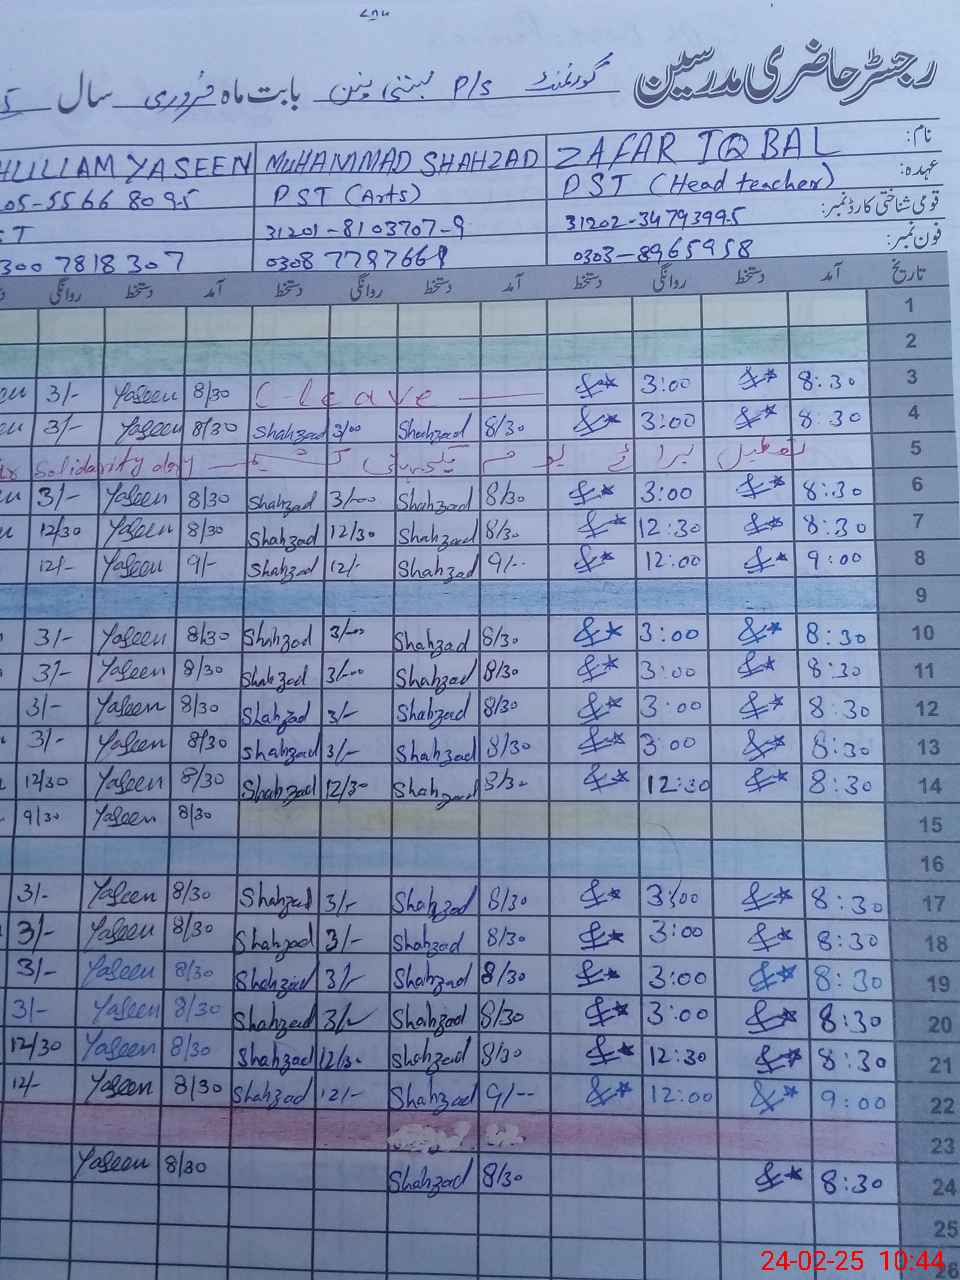 رجسٹر حاضری مدرسین گورنمنٹ P/S بستی بابت ماہ فروری سال
نام: ZAFAR IQBAL MUHAMMAD SHAHZAD YASEEN
عہدہ: PST (Head teacher) PST (Arts)
قومی شناختی کارڈ نمبر: 31202-34793995 31201-8103707-9 05-5566809-5
فون نمبر: 0303-8965958 0308 7797661 300 7818307
تاریخ آمد دستخط روانگی دستخط آمد دستخط روانگی دستخط آمد دستخط روانگی
1
2
3 8:30 3:00 C-leave 8/30 Yaseen 3/-
4 8:30 3:00 8/30 Shahzad 3/00 Shahzad 8/30 Yaseen 3/-
5 تعطیل برائے یوم یکجہتی Solidarity day
6 8:30 3:00 8/30 Shahzad 3/-00 Shahzad 8/30 Yaseen 3/-
7 8:30 12:30 8/30 Shahzad 12/30 Shahzad 8/30 Yaseen 12/30
8 9:00 12:00 9/-- Shahzad 12/- Shahzad 9/- Yaseen 12/-
9
10 8:30 3:00 8/30 Shahzad 3/-00 Shahzad 8/30 Yaseen 3/-
11 8:30 3:00 8/30 Shahzad 3/-00 Shahzad 8/30 Yaseen 3/-
12 8:30 3:00 8/30 Shahzad 3/- Shahzad 8/30 Yaseen 3/-
13 8:30 3:00 8/30 Shahzad 3/- Shahzad 8/30 Yaseen 3/-
14 8:30 12:30 8/30 Shahzad 12/30 Shahzad 8/30 Yaseen 12/30
15 8/30 Yaseen 9/30
16
17 8:30 3:00 8/30 Shahzad 3/- Shahzad 8/30 Yaseen 3/-
18 8:30 3:00 8/30 Shahzad 3/- Shahzad 8/30 Yaseen 3/-
19 8:30 3:00 8/30 Shahzad 3/- Shahzad 8/30 Yaseen 3/-
20 8:30 3:00 8/30 Shahzad 3/- Shahzad 8/30 Yaseen 3/-
21 8:30 12:30 8/30 Shahzad 12/30 Shahzad 8/30 Yaseen 12/30
22 9:00 12:00 9/-- Shahzad 12/- Shahzad 8/30 Yaseen 12/-
23
24 8:30 8/30 Shahzad 8/30 Yaseen
25
26
24-02-25 10:44